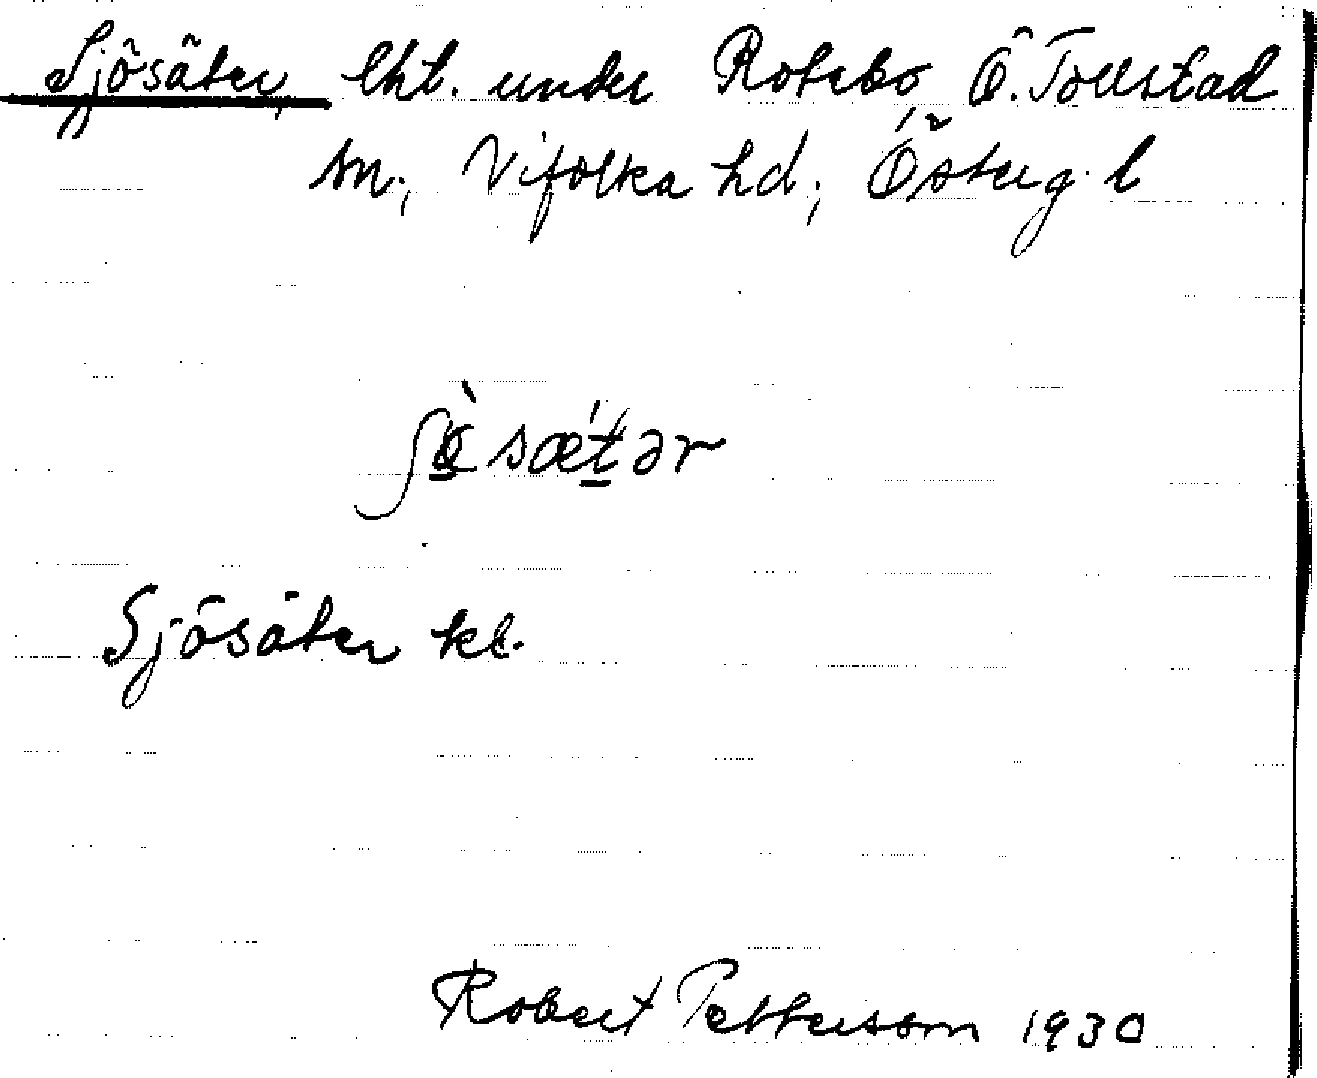 Sjösäter, lht. under Rotebo, Ö. Tollstad
sn., Vifolka hd., Österg. l
sæt́ər
Sjösäter kl.
Robert Petterson 1930